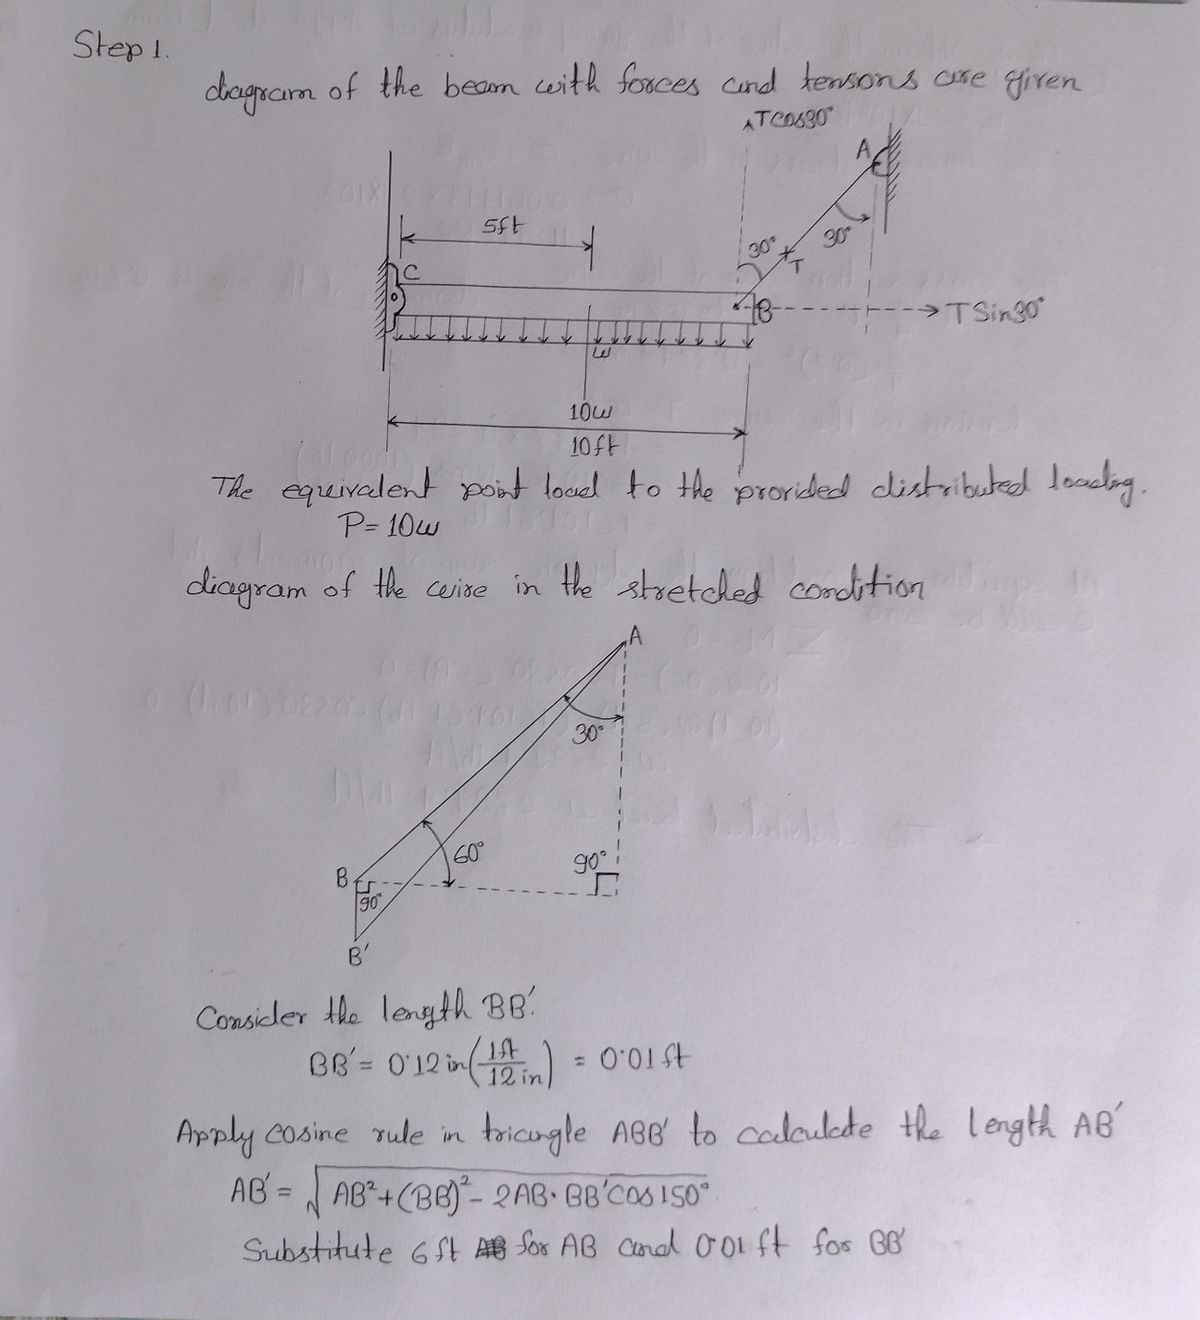 Step 1.
diagram of the beam with forces and tensons are given
TCOS30°
A
5ft
30°
T
30°
C
B
TSin30°
w
10w
10ft
The equivalent point load to the provided distributed loading.
P= 10w
diagram of the wire in the stretched condition
A
30°
60°
90°
B
90°
B'
Consider the length BB'.
BB' = 0.12 in(1ft/12 in) = 0.01 ft
Apply cosine rule in triangle ABB' to calculate the length AB'
AB' = √AB²+(BB')²- 2AB· BB'COS 150°
Substitute 6 ft for AB and 0.01 ft for BB'